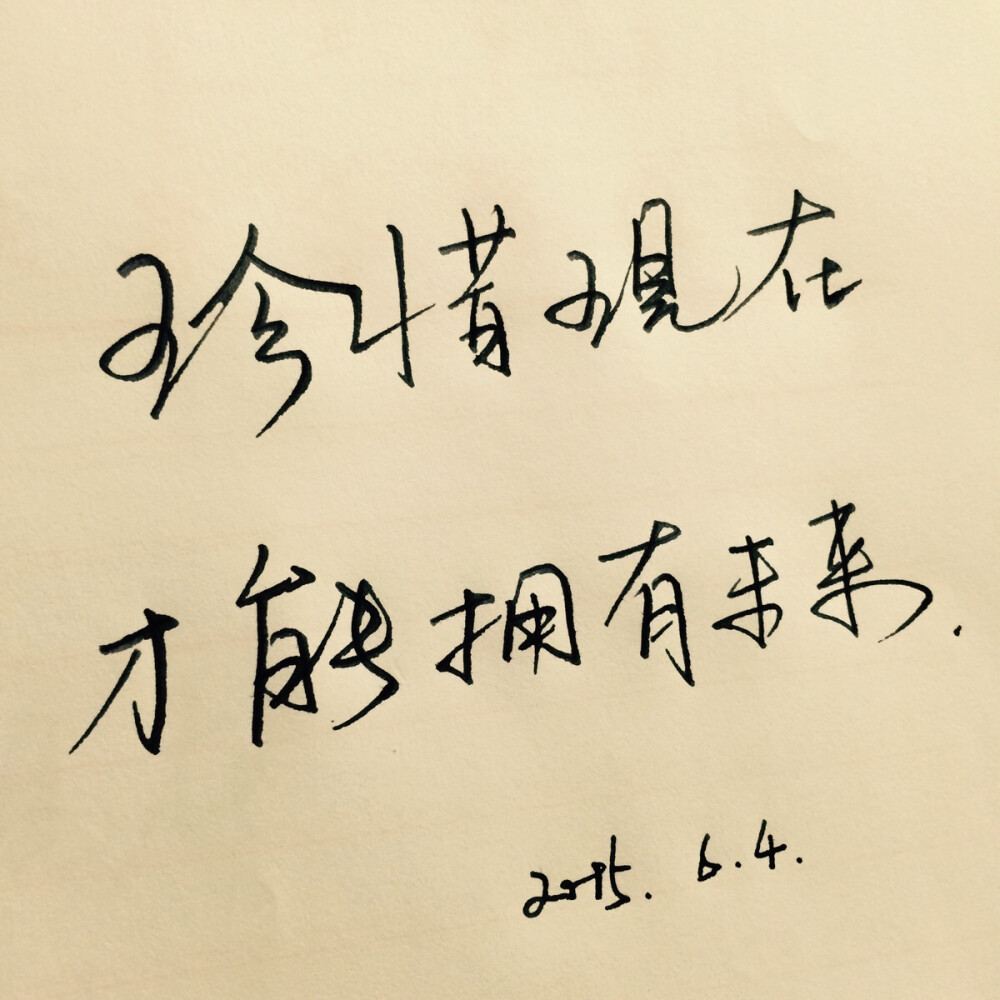 珍惜现在
才能拥有未来.
2015. 6.4.